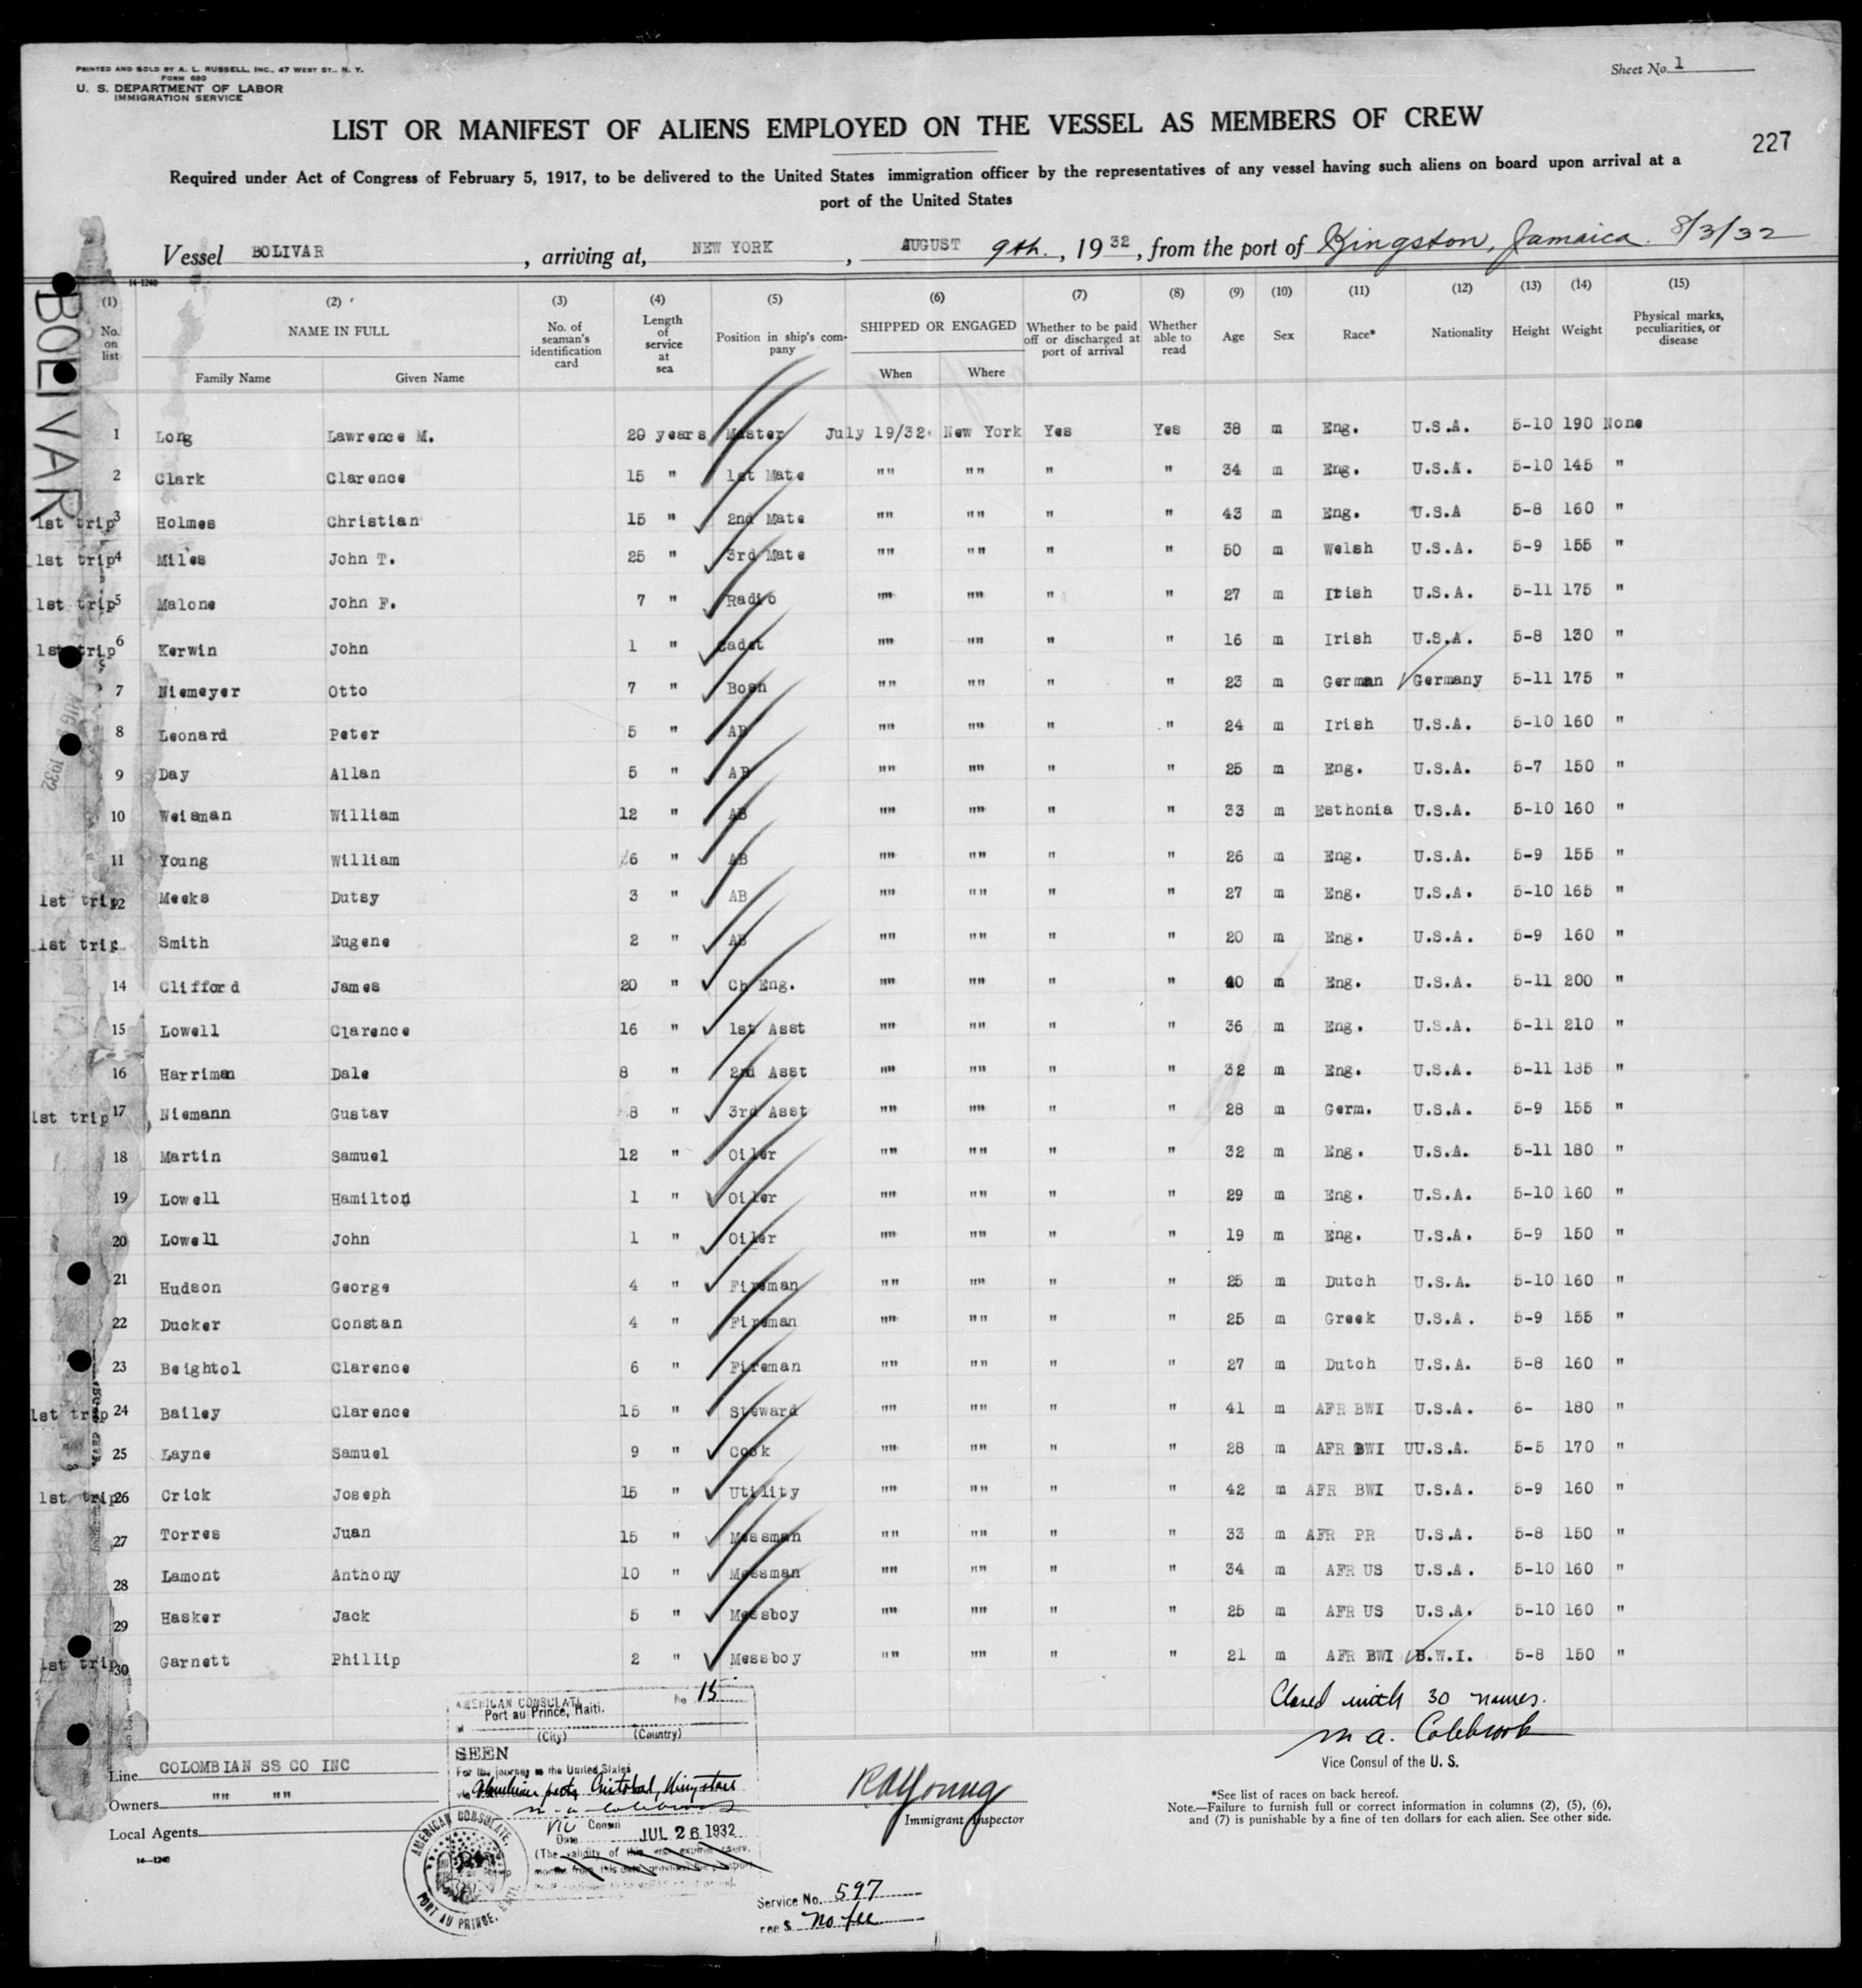 PRINTED AND SOLD BY A. L. RUSSELL, INC., 47 WEST ST., N. Y.
FORM 680
U. S. DEPARTMENT OF LABOR
IMMIGRATION SERVICE
Sheet No. 1
LIST OR MANIFEST OF ALIENS EMPLOYED ON THE VESSEL AS MEMBERS OF CREW
227
Required under Act of Congress of February 5, 1917, to be delivered to the United States immigration officer by the representatives of any vessel having such aliens on board upon arrival at a
port of the United States
Vessel BOLIVAR, arriving at, NEW YORK, AUGUST 9th., 1932, from the port of Kingston, Jamaica. 8/3/32
14-1240
BOLIVAR
(1) (2) (3) (4) (5) (6) (7) (8) (9) (10) (11) (12) (13) (14) (15)
No. on list NAME IN FULL No. of seaman's identification card Length of service at sea Position in ship's company SHIPPED OR ENGAGED Whether to be paid off or discharged at port of arrival Whether able to read Age Sex Race* Nationality Height Weight Physical marks, peculiarities, or disease
Family Name Given Name When Where
1 Long Lawrence M. 20 years Master July 19/32 New York Yes Yes 38 m Eng. U.S.A. 5-10 190 None
2 Clark Clarence 15 " 1st Mate "" "" " " 34 m Eng. U.S.A. 5-10 145 "
1st trip 3 Holmes Christian 15 " 2nd Mate "" "" " " 43 m Eng. U.S.A 5-8 160 "
1st trip 4 Miles John T. 25 " 3rd Mate "" "" " " 50 m Welsh U.S.A. 5-9 155 "
1st trip 5 Malone John F. 7 " Radio "" "" " " 27 m Irish U.S.A. 5-11 175 "
1st trip 6 Kerwin John 1 " Cadet "" "" " " 16 m Irish U.S.A. 5-8 130 "
7 Niemeyer Otto 7 " Bosn "" "" " " 23 m German Germany 5-11 175 "
8 Leonard Peter 5 " AB "" "" " " 24 m Irish U.S.A. 5-10 160 "
9 Day Allan 5 " AB "" "" " " 25 m Eng. U.S.A. 5-7 150 "
10 Weisman William 12 " AB "" "" " " 33 m Esthonia U.S.A. 5-10 160 "
11 Young William 6 " AB "" "" " " 26 m Eng. U.S.A. 5-9 155 "
1st trip 12 Meeks Dutsy 3 " AB "" "" " " 27 m Eng. U.S.A. 5-10 165 "
1st trip Smith Eugene 2 " AB "" "" " " 20 m Eng. U.S.A. 5-9 160 "
14 Clifford James 20 " Ch Eng. "" "" " " 40 m Eng. U.S.A. 5-11 200 "
15 Lowell Clarence 16 " 1st Asst "" "" " " 36 m Eng. U.S.A. 5-11 210 "
16 Harriman Dale 8 " 2nd Asst "" "" " " 32 m Eng. U.S.A. 5-11 185 "
1st trip 17 Niemann Gustav 8 " 3rd Asst "" "" " " 28 m Germ. U.S.A. 5-9 155 "
18 Martin Samuel 12 " Oiler "" "" " " 32 m Eng. U.S.A. 5-11 180 "
19 Lowell Hamilton 1 " Oiler "" "" " " 29 m Eng. U.S.A. 5-10 160 "
20 Lowell John 1 " Oiler "" "" " " 19 m Eng. U.S.A. 5-9 150 "
21 Hudson George 4 " Fireman "" "" " " 25 m Dutch U.S.A. 5-10 160 "
22 Ducker Constan 4 " Fireman "" "" " " 25 m Greek U.S.A. 5-9 155 "
23 Beightol Clarence 6 " Fireman "" "" " " 27 m Dutch U.S.A. 5-8 160 "
1st trip 24 Bailey Clarence 15 " Steward "" "" " " 41 m AFR BWI U.S.A. 6- 180 "
25 Layne Samuel 9 " Cook "" "" " " 28 m AFR BWI UU.S.A. 5-5 170 "
1st trip 26 Crick Joseph 15 " Utility "" "" " " 42 m AFR BWI U.S.A. 5-9 160 "
27 Torres Juan 15 " Messman "" "" " " 33 m AFR PR U.S.A. 5-8 150 "
28 Lamont Anthony 10 " Messman "" "" " " 34 m AFR US U.S.A. 5-10 160 "
29 Hasker Jack 5 " Messboy "" "" " " 25 m AFR US U.S.A. 5-10 160 "
1st trip 30 Garnett Phillip 2 " Messboy "" "" " " 21 m AFR BWI B.W.I. 5-8 150 "
Closed with 30 names.
M. A. Colebrook
Vice Consul of the U. S.
AMERICAN CONSULATE No 15
Port au Prince, Haiti.
(City) (Country)
SEEN
For the journey to the United States
via Colombian ports, Cristobal, Kingston
Vice Consul
Date JUL 26 1932
(The validity of this
AMERICAN CONSULATE,
PORT AU PRINCE,
Line COLOMBIAN SS CO INC
Owners "" ""
Local Agents
14-1240
RA Young
Immigrant Inspector
*See list of races on back hereof.
Note.—Failure to furnish full or correct information in columns (2), (5), (6),
and (7) is punishable by a fine of ten dollars for each alien. See other side.
Service No. 597
Fee $ No fee